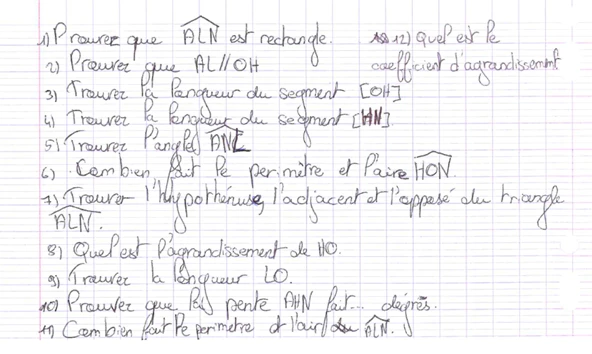 1) Prouvez que ALN est rectangle.
12) Quel est le
coefficient d'agrandissemnt
2) Prouvez que AL//OH
3) Trouvez la longueur du segment [OH]
4) Trouvez la longueur du segment [HN]
5) Trouvez l'angle ANL
6) Combien fait le perimètre et l'aire HON.
7) Trouver l'hypothénuse, l'adjacent et l'opposé du triangle
ALN.
8) Quel est l'agrandissement de HO.
9) Trouvez la longueur LO.
10) Prouvez que la pente AHN fait... degrés.
11) Combien fait le perimetre et l'air du ALN.